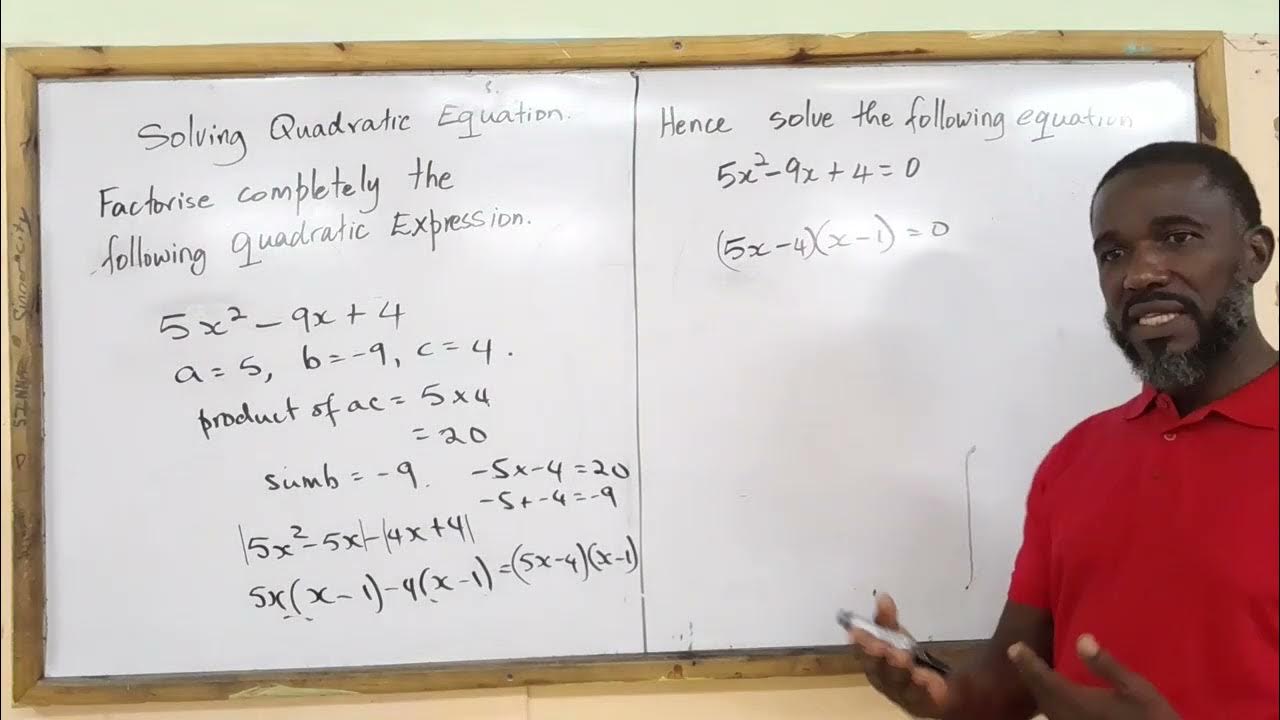 Solving Quadratic Equation.
Factorise completely the
following quadratic Expression.
5x² - 9x + 4
a = 5, b = -9, c = 4.
product of ac = 5 × 4
= 20
sum b = -9. -5 × -4 = 20
-5 + -4 = -9
|5x² - 5x| - |4x + 4|
5x(x - 1) - 4(x - 1) = (5x - 4)(x - 1)
Hence solve the following equation
5x² - 9x + 4 = 0
(5x - 4)(x - 1) = 0